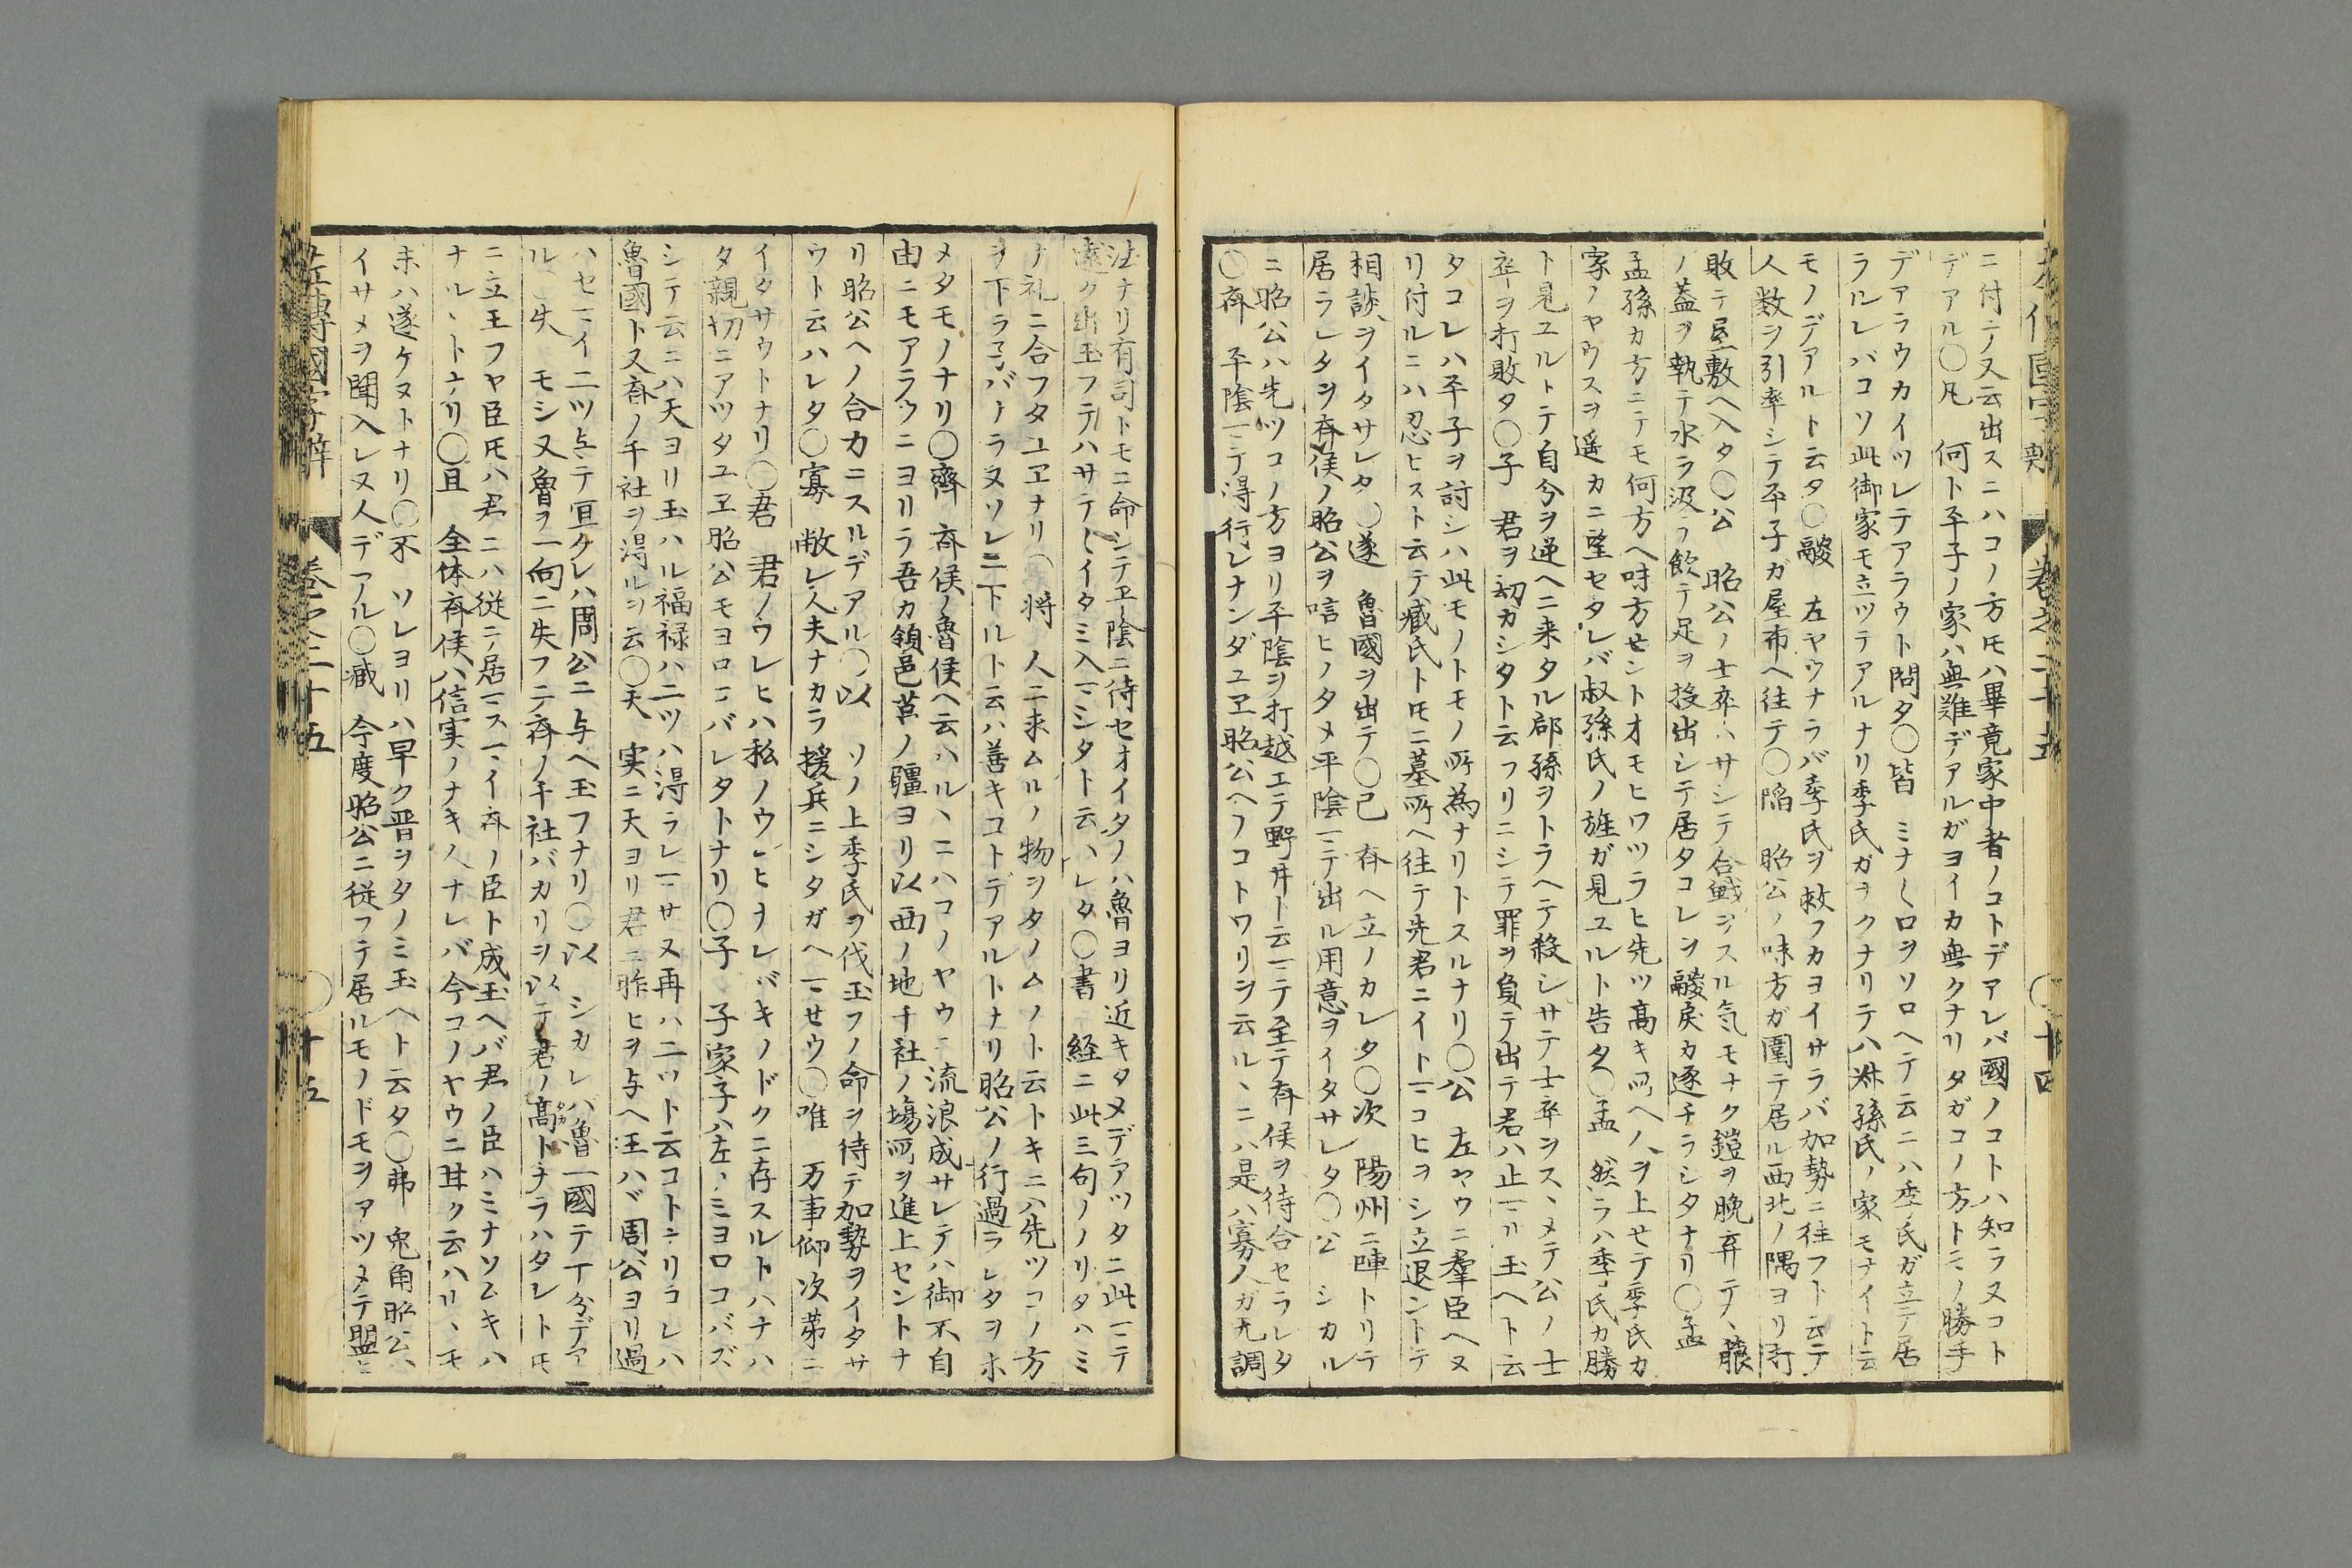 卷之二十五 〇十四
ニ付テノ又云出スニハコノ方𪜈ハ畢竟家中者ノコトデアレバ國ノコトハ知ラヌコト
デアル〇凡 何ト平子ノ家ハ無難デアルガヨイカ無クナリタガコノ方トモノ勝手
デアラウカイツレテアラウト問タ〇皆 ミナ〱口ヲソロヘテ云ニハ季氏ガ立テ居
ラルレバコソ此御家モ立ツテアルナリ季氏ガヲクナリテハ叔孫氏ノ家モナイト云
モノデアルト云タ〇鬷 左ヤウナラバ季氏ヲ救フカヨイサラバ加勢ニ往フト云テ
人数ヲ引率シテ平子ガ屋布ヘ往テ〇陷 昭公ノ味方ガ圍テ居ル西北ノ隅ヨリ討
敗テ屋敷ヘ入タ〇公 昭公ノ士卒ハサシテ合戦ヲスル気モナク鎧ヲ晩弃テ
ノ蓋ヲ執テ水ヲ汲ラ飲テ足ヲ投出シテ居タコレヲ鬷戻カ逐チラシタナリ〇孟
孟孫カ方ニテモ何方ヘ味方せントオモヒワツラヒ先ツ高キ所ヘ人ヲ上せテ季氏カ
家ノヤウスヲ遥カニ望セタレバ叔孫氏ノ旌ガ見ユルト告タ〇孟 然ラハ季氏カ勝
ト見ユルトテ自今ヲ逆ヘニ来タル郈孫ヲトラヘテ殺シサテ士卒ヲスヽメテ公ノ士
卒ヲ打敗タ〇子 君ヲ刧カシタト云フリニシテ罪ヲ負テ出テ君ハ止マリ玉ヘト云
タコレハ平子ヲ討シハ此モノトモノ所為ナリトスルナリ〇公 左ヤウニ羣臣ヘヌ
リ付ルニハ忍ヒスト云テ臧氏ト𪜈ニ墓所ヘ往テ先君ニイトマコヒヲシ立退ントテ
相談ヲイタサレタ〇遂 魯國ヲ出テ〇己 斉ヘ立ノカレタ〇次 陽州ニ陣トリテ
居ラレタヲ斉侯ノ昭公ヲ唁ヒノタメ平陰マテ出ル用意ヲイタサレタ〇公 シカル
ニ昭公ハ先ツコノ方ヨリ平陰ヲ打越エテ野井ト云マテ至テ斉侯ヲ待合セラレタ
〇斉 平陰マテ得行レナンダユヱ昭公ヘノコトワリヲ云ルヽニハ是ハ寡人ガ无調
法ナリ有司トモニ命シテ平陰ニ待セオイタノハ魯ヨリ近キタメデアツタニ此マテ
遠ク出玉フテハサテ〱イタミ入マシタト云ハレタ〇書 経ニ此三句ノノリタハミ
ナ礼ニ合フタユヱナリ〇將 人ニ求ムルノ物ヲタノムノト云トキニハ先ツコノ方
ヲ下ラ子バナラヌソレニ下ルト云ハ善キコトデアルトナリ昭公ノ行過ラレタヲホ
メタモノナリ〇齊 斉侯ノ魯侯ヘ云ハルヽニハコノヤウニ流浪成サレテハ御不自
由ニモアラウニヨリラ吾カ領邑莒ノ疆ヨリ以西ノ地千社ノ場所ヲ進上セントナ
リ昭公ヘノ合力ニスルデアル〇以 ソノ上季氏ヲ伐玉フノ命ヲ待テ加勢ヲイタサ
ウト云ハレタ〇寡 敝レ人夫ナカラ援兵ニシタガヘマせウ〇唯 万事仰次第ニ
イタサウトナリ〇君 君ノウレヒハ私ノウレヒナレバキノドクニ存スルトハナハ
タ親切ニアツタユヱ昭公モヨロコバレタトナリ〇子 子家子ハ左ノミヨロコバズ
シテ云ニハ天ヨリ玉ハル福禄ハ二ツハ得ラレマサヌ再ハ二ツト云コトナリコレハ
魯國ト又斉ノ千社ヲ得ルヲ云〇天 実ニ天ヨリ君ニ胙ヒヲ与ヘ玉ハヾ周公ヨリ過
ハセマイ二ツ与テ亘クレハ周公ニ与ヘ玉フナリ〇以 シカレバ魯一國テ丁分デア
ル 失 モシ又魯ヲ一向ニ失フニテ斉ノ千社バカリヲ以テ君ノ高トナラハタレト𪜈
ニ立玉フヤ臣𪜈ハ君ニハ従ニテ居マスマイ斉ノ臣ト成玉ヘバ君ノ臣ハミナソムキハ
ナルヽトナリ〇且 全体斉侯ハ信実ノナキ人ナレバ今コノヤウニ甘ク云ハリヽモ
末ハ遂ケヌトナリ〇不 ソレヨリハ早ク晋ヲタノミ玉ヘト云タ〇弗 兎角昭公ハ
イサメヲ聞入レヌ人デアル〇臧 今度昭公ニ従フテ居ルモノドモヲアツメテ盟ヒ
左傳國字辯 卷之二十五 〇十五